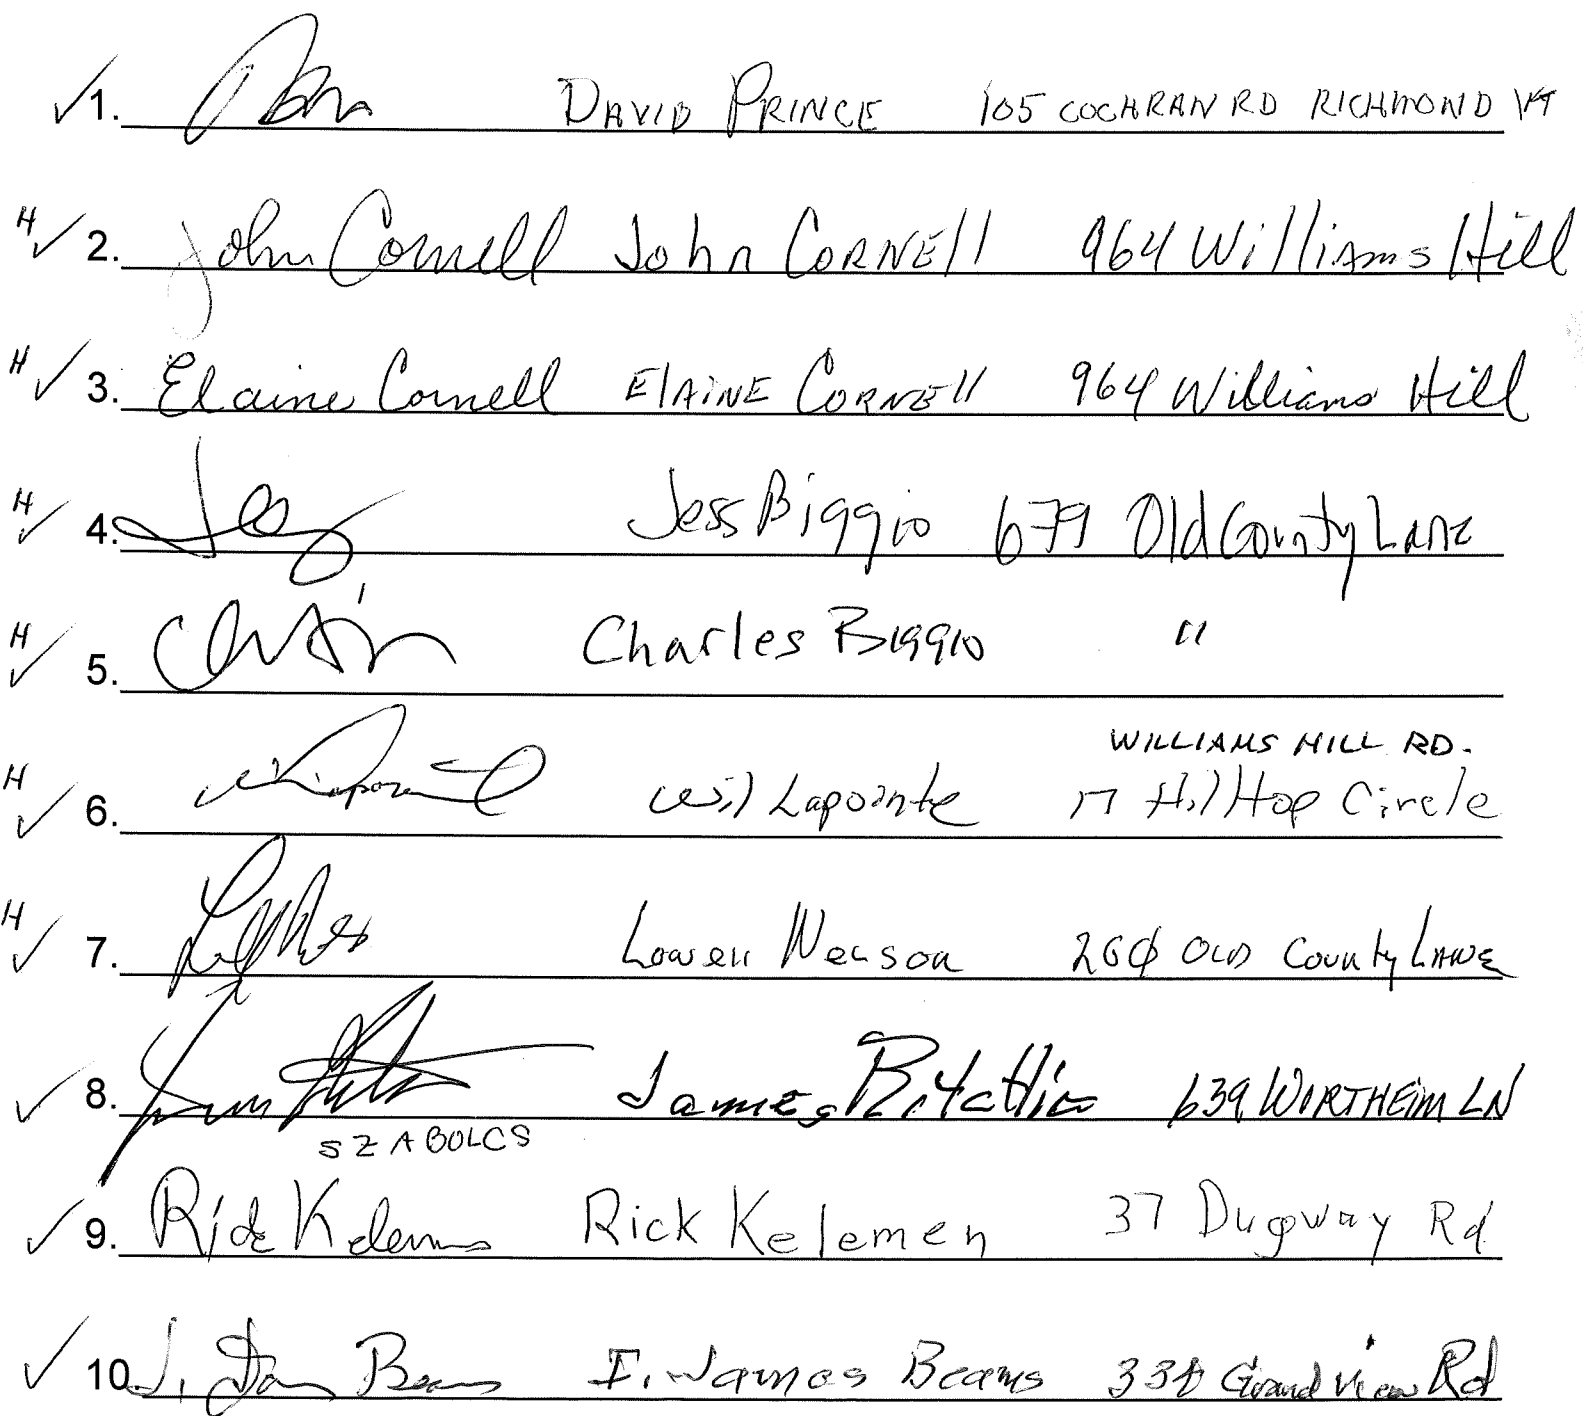 ✓ 1. DAVID PRINCE 105 COCHRAN RD RICHMOND VT
H ✓ 2. John Cornell John CORNEll 964 Williams Hill
H ✓ 3. Elaine Cornell ElAiNE CORNEll 964 Williams Hill
H ✓ 4. Jess Biggio 679 Old County Lane
H ✓ 5. Charles Biggio "
WILLIAMS HILL RD.
H ✓ 6. Wil Lapointe 17 Hill Top Circle
H ✓ 7. Lowell Nelson 260 OLD County LANE
✓ 8. James Ritchie 639 WORTHEIM LN
SZABOLCS
✓ 9. Rick Kelemen Rick Kelemen 37 Dugway Rd
✓ 10. J. Beams I. James Beams Grand View Rd